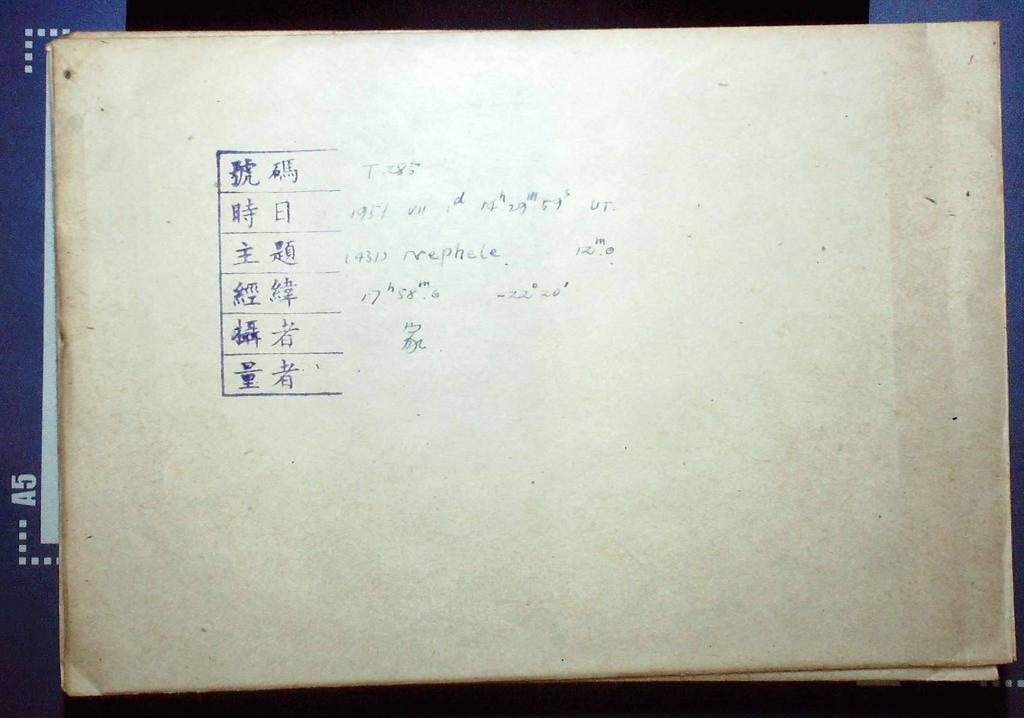 號碼 T 285
時日 1951 VII 1ᵈ 14ʰ 29ᵐ 59ˢ UT.
主題 (431) Nephele. 12ᵐ.0
經緯 17ʰ 58ᵐ.6 -22° 20'
攝者 家
量者
A5